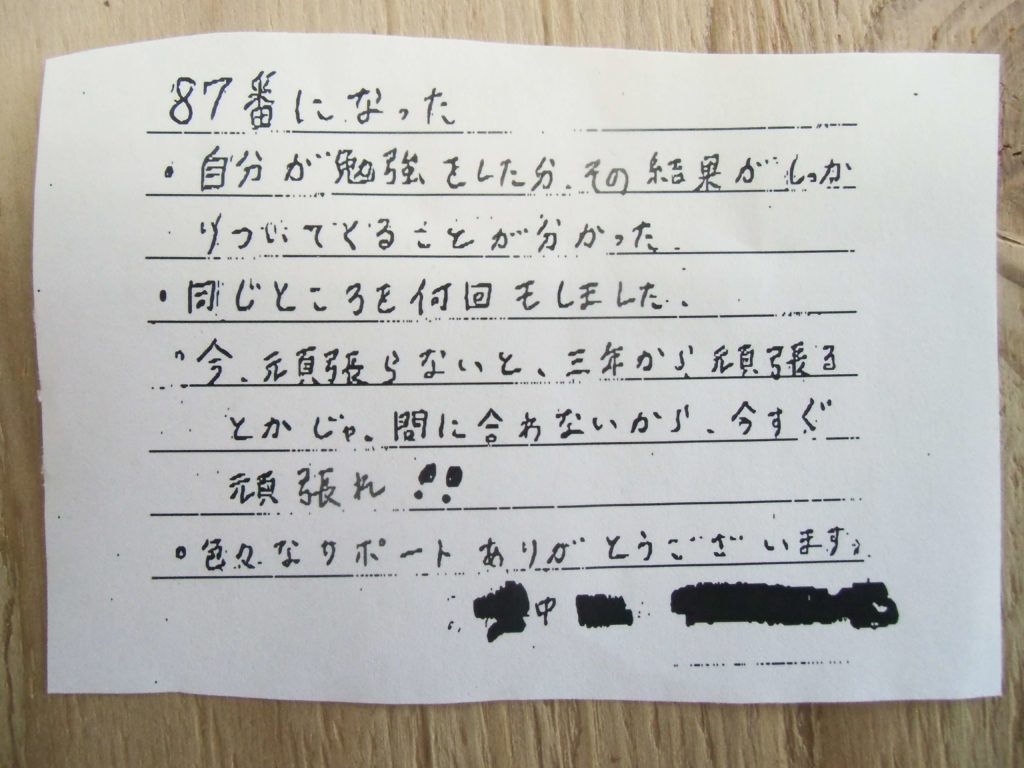 87番になった
・自分が勉強をした分、その結果がしっか
りついてくることが分かった。
・同じところを何回もしました。
・今、頑張らないと、三年から頑張る
とかじゃ、間に合わないから、今すぐ
頑張れ!!
・色々なサポートありがとうございます。
中